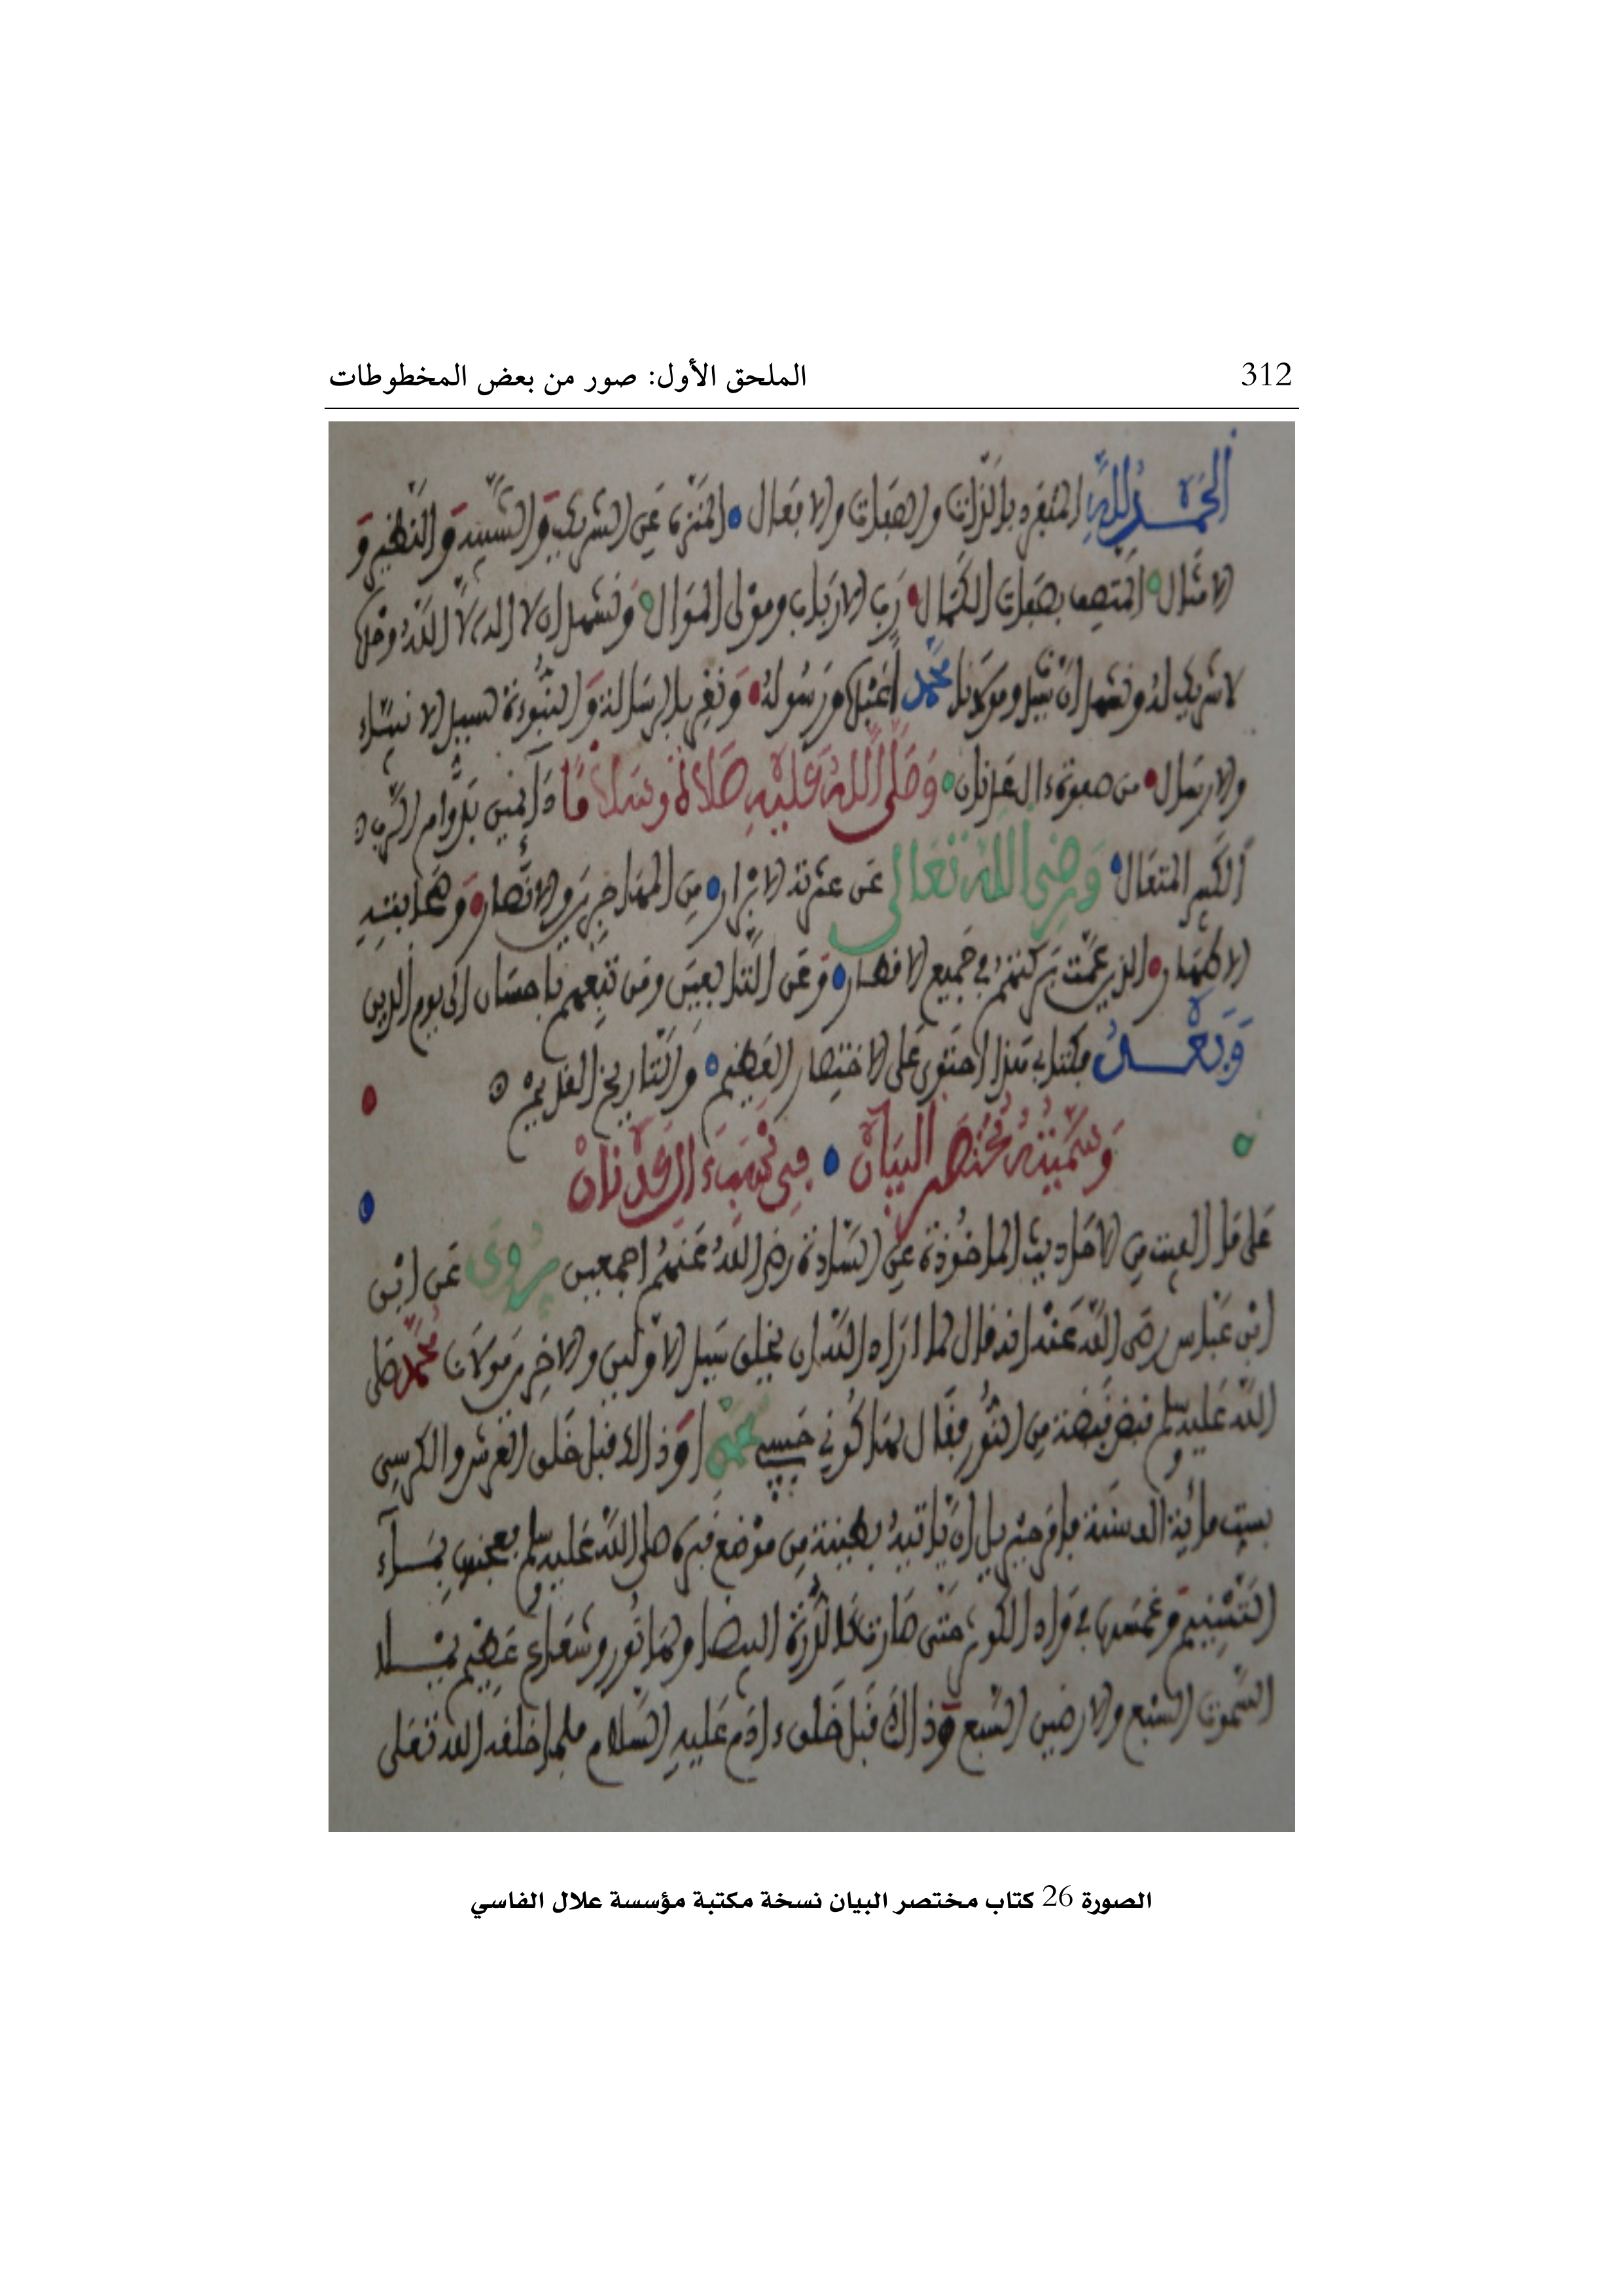 312 الملحق الأول: صور من بعض المخطوطات
الحمد لله المنفرد بالذات والصفات والافعال المنزه عن الشريك والشبيه والنظير و
الامثال المتصف بصفات الكمال رب الارباب ومولى الموال ونشهد ان لا اله الا الله وحده
لا شريك له ونشهد ان سيدنا ومولانا محمدا عبده ورسوله ونقر بالرسالة والنبوءة لسيد الانبياء
والارسال من صفوة ال عدنان وصلى الله عليه صلاة وسلاما دآئمين بدوام الرب
الكبير المتعال ورضى الله تعالى عن عترته الابرار من المهاجرين والانصار وصحابته
الاطهار الذين عمت بركتهم في جميع الاقطار وعن التابعين ومن تبعهم باحسان الى يوم الدين
وبعد فكتابي هذا احتوى على الاختصار العظيم والتاريخ القديم
وسميته مختصر البيان في نسب ال عدنان
على ما الفيت من الاحاديث الماخوذة عن السادة رضي الله عنهم اجمعين يروى عن ابن
ابن عباس رضى الله عنه انه قال لما اراد الله ان يخلق سيد الاولين والاخرين مولانا محمد صلى
الله عليه وسلم قبض قبضة من النور فقال لها كوني حبيبي محمدا وذالك قبل خلق العرش والكرسي
بست مائية الف سنة فامر جبريل ان ياتيه بطينة من موضع قبره صلى الله عليه وسلم بعجنت بمآء
التسنيم وغمسها في واد الكوثر حتى صارت كالدرة البيضا ولها نور وشعاع عظيم يملا
السموت السبع والارضين السبع وذالك قبل خلق ءادم عليه السلام فلما خلقه الله تعلى
الصورة 26 كتاب مختصر البيان نسخة مكتبة مؤسسة علال الفاسي